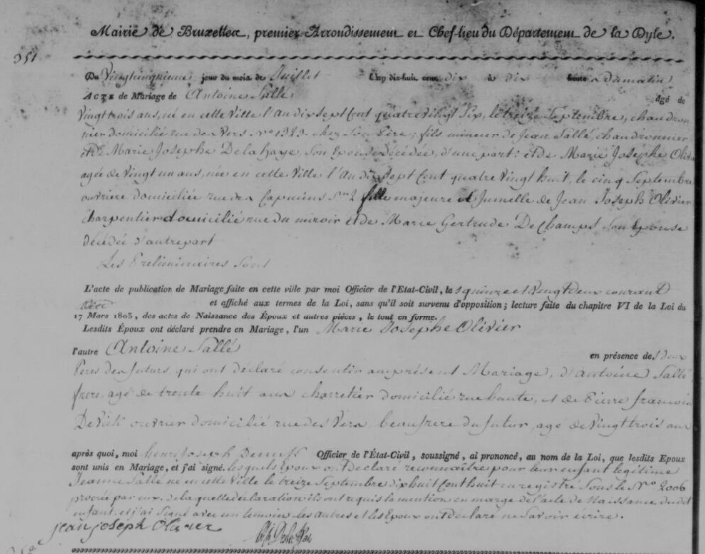 Mairie de Bruxelles, premier Arrondissement et Chef-lieu du Département de la Dyle.
351
Du Vingtcinquieme jour du mois de Juillet L'an dix-huit cent dix à dix heures du matin
Acte de Mariage de Antoine Sallé âgé de
Vingt trois ans, né en cette Ville l'an dix sept cent quatre vingt Six, le treize Septembre, chaudron
nier domicilié rue des Vers N° 1323 chez Son Père; fils mineur de Jean Sallé, chaudronnier
et de Marie Josephe Delahaye, Son Epouse décédée, d'une part; et de Marie Josephe Olivier
agée de Vingt un ans, née en cette Ville l'An dix sept cent quatre vingt huit, le cinq Septembre
ouvrière domiciliée rue des Capucins fille majeure et Jumelle de Jean Joseph Olivier
charpentier domicilié rue du miroir et de Marie Gertrude De Champs, son epouse
décédée d'autre part
Les Préliminaires Sont
L'acte de publication de Mariage faite en cette ville par moi Officier de l'Etat-Civil, le quinze et Vingt deux courant
et affiché aux termes de la Loi, sans qu'il soit survenu d'opposition; lecture faite du chapitre VI de la Loi du
17 Mars 1803, des actes de Naissance des Époux et autres pièces, le tout en forme.
Lesdits Époux ont déclaré prendre en Mariage, l'un Marie Josephe Olivier
l'autre Antoine Sallé en présence des deux
Pères des futurs qui ont declaré consentir au présent Mariage, d'Antoine Sallé
frere, agé de trente huit ans charretier domicilié rue haute, et de Pierre francois
ouvrier domicilié rue des Vers beaufrere du futur, agé de Vingt trois ans
après quoi, moi henri Joseph Officier de l'État-Civil, soussigné, ai prononcé, au nom de la Loi, que lesdits Époux
sont unis en Mariage, et j'ai signé. lesquels Epoux ont declaré reconnaître pour leur enfant légitime
Jeanne Sallé née en cette Ville le treize Septembre dix huit Cent huit enregistré Sous le N° 2006
procréé par eux, de laquelle declaration ils ont requis la mention en marge de l'acte de Naissance dudit
enfant, et j'ai Signé avec un temoin, les autres et les Epoux ont declaré ne Savoir écrire.
jean joseph Olivier